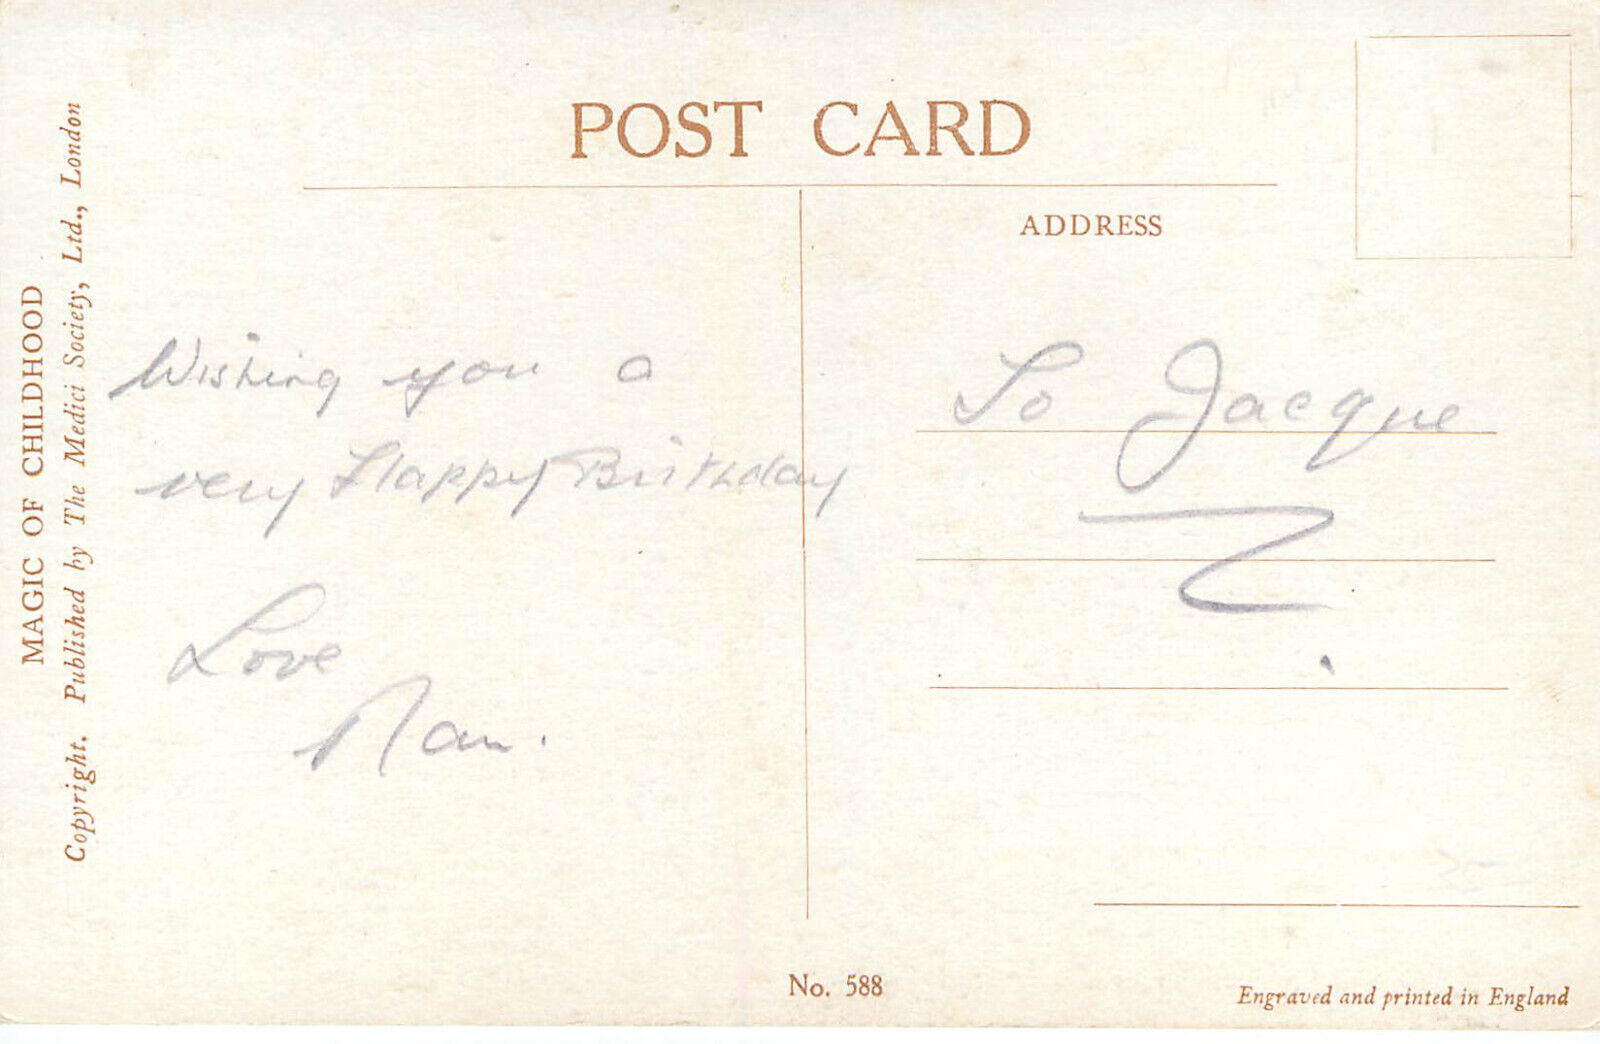 POST CARD
ADDRESS
MAGIC OF CHILDHOOD
Copyright. Published by The Medici Society, Ltd., London
Wishing you a
very Happy Birthday
Love
Nan.
To Jacque
No. 588
Engraved and printed in England